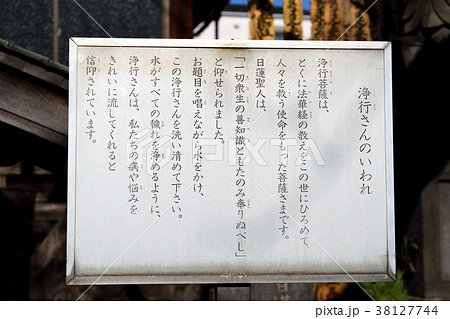 浄行さんのいわれ
浄行菩薩は、
とくに法華経の教えをこの世にひろめて、
人々を救う使命をもった菩薩さまです。
日蓮聖人は、
「一切衆生の善知識ともたのみ奉りぬべし」
と仰せられました。
お題目を唱えながら水をかけ、
この浄行さんを洗い清めて下さい。
水がすべての穢れを浄めるように、
浄行さんは、私たちの病や悩みを
きれいに流してくれると
信仰されています。
PIXTA
pixta.jp - 38127744